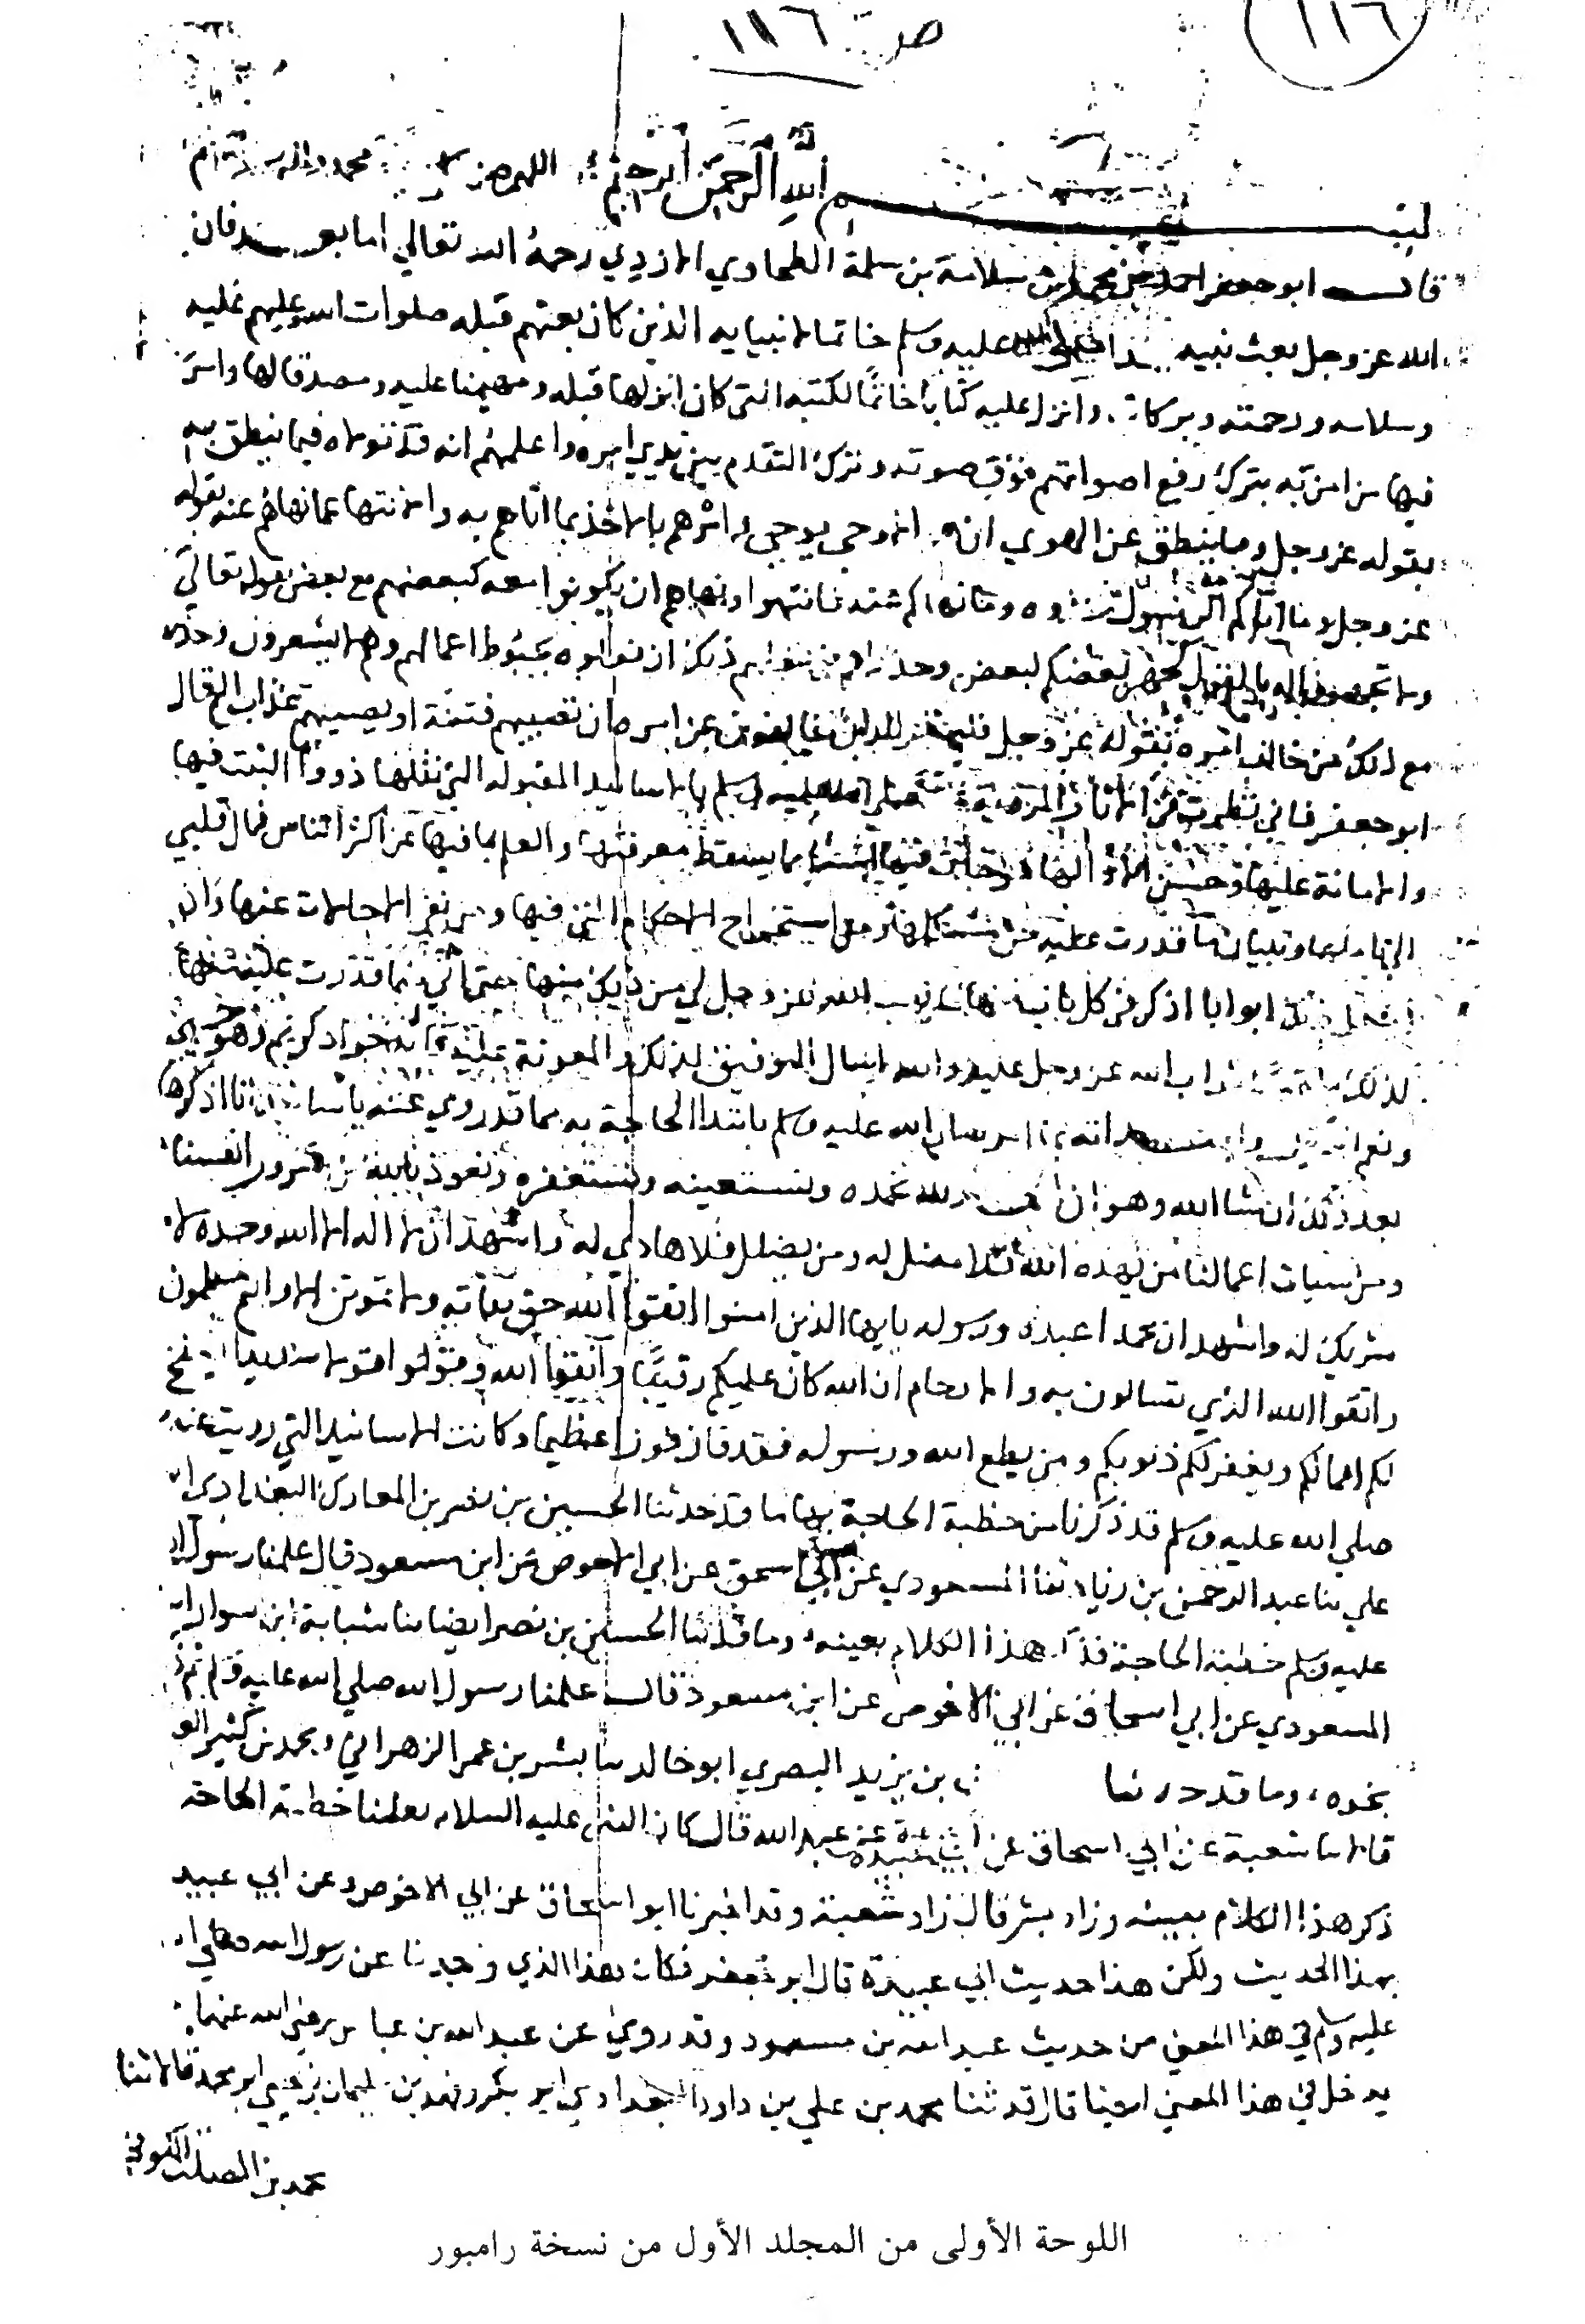 ص ١١٦
١١٦
بسم الله الرحمن الرحيم اللهم صل محمد واله
قال ابو جعفر احمد بن محمد بن سلامة بن سلمة الطحاوي الازدي رحمه الله تعالي اما بعد فان
الله عز وجل بعث نبيه عليه وسلم خاتما لانبيايه الذين كان بعثهم قبله صلوات الله عليهم عليه
وسلامه ورحمته وبركاته وانزل عليه كتابا خاتما لكتبه التي كان انزلها قبله ومهيمنا عليه ومصدقا لها وامر
فيها من امن به بترك رفع اصواتهم فوق صوته وترك التقدم بين يدي امره واعلمهم انه قد تولاه فيما ينطق به
بقوله عز وجل وما ينطق عن الهوي ان هو الا وحي يوحي وامرهم بالاخذ بما اتاهم به والانتها عما نهاهم عنه بقوله
عز وجل وما اتاكم الرسول فخذوه وما نهاكم عنه فانتهوا ونهاهم ان يكونوا معه كبعضهم مع بعض بقوله تعالي
ولا تجهروا له بالقول كجهر بعضكم لبعض وحذرهم ذلك ان فعلوه بحبوط اعمالهم وهم لا يشعرون وحذر
مع ذلك من خالف امره بقوله عز وجل فليحذر الذين يخالفون عن امره ان تصيبهم فتنة او يصيبهم عذاب اليم قال
ابو جعفر فاني نظرت في الاثار المروية عنه صلي الله عليه وسلم بالاسانيد المقبوله التي نقلها ذووا التثبت فيها
والامانة عليها وحسن الادا لها فوجدت فيها اشيا مما يسقط معرفتها والعلم بما فيها عن اكثر الناس فمال قلبي
الي تاملها وتبيان ما قدرت عليه من مشكلها ومن استخراج الاحكام التي فيها ومن نفي الاحالات عنها وان
اجعل ذلك ابوابا اذكر في كل باب منها ما يهب الله عز وجل لي من ذلك منها حتي اتي فيما قدرت عليه منها
لذلك ملتمسا ثواب الله عز وجل عليه والله اسال التوفيق لذلك والمعونة عليه فانه جواد كريم وهو حسبي
ونعم الوكيل وابتدات بما امر صلي الله عليه وسلم بابتدا الحاجة به مما قد روي عنه باسانيد انا اذكرها
بعد ذلك ان شا الله وهو ان الحمد لله نحمده ونستعينه ونستغفره ونعوذ بالله من شرور انفسنا
ومن سيات اعمالنا من يهده الله فلا مضل له ومن يضلل فلا هادي له واشهد ان لا اله الا الله وحده لا
شريك له واشهد ان محمدا عبده ورسوله يايها الذين امنوا اتقوا الله حق تقاته ولا تموتن الا وانتم مسلمون
واتقوا الله الذي تسالون به والارحام ان الله كان عليكم رقيبا واتقوا الله وقولوا قولا سديدا يصلح
لكم اعمالكم ويغفر لكم ذنوبكم ومن يطع الله ورسوله فقد فاز فوزا عظيما وكانت الاسانيد التي رويت عنه
صلي الله عليه وسلم قد ذكرنا من خطبة الحاجة بها ما قد حدثنا الحسين بن نصر بن المعارك البغدادي
علي بنا عبد الرحمن بن زياد ثنا المسعودي عن ابي اسحق عن ابي الاحوص عن ابن مسعود قال علمنا رسول الله
عليه وسلم خطبة الحاجة فذكر هذا الكلام بعينه وما قد ثنا الحسين بن نصر ايضا ثنا شبابة ابن سوار
المسعودي عن ابي اسحاق عن ابي الاحوص عن ابن مسعود قال علمنا رسول الله صلي الله عليه وسلم ثم ذكر
نحوه وما قد حدثنا بن يزيد البصري ابو خالد ثنا بشر بن عمر الزهراني ومحمد بن كثير
قالا ثنا شعبة عن ابي اسحاق عن ابي عبيدة عن عبد الله قال كان النبي عليه السلام يعلمنا خطبة الحاجة
ذكر هذا الكلام بعينه وزاد بشر قال زاد شعبة وقد اخبرنا ابو اسحاق عن ابي الاحوص وعن ابي عبيد
بهذا الحديث ولكن هذا حديث ابي عبيدة قال ابو جعفر فكان هذا الذي وجدنا عن رسول الله صلي
عليه وسلم في هذا المعني من حديث عبد الله بن مسعود وقد روي عن عبد الله بن عباس رضي الله عنهما
يدخل في هذا المعني ايضا قال قد ثنا محمد بن علي بن داود البغدادي ابو بكر وفهد بن سليمان بن يحيي ابو محمد قالا ثنا
محمد بن الصلت الكوفي
اللوحة الأولى من المجلد الأول من نسخة رامبور